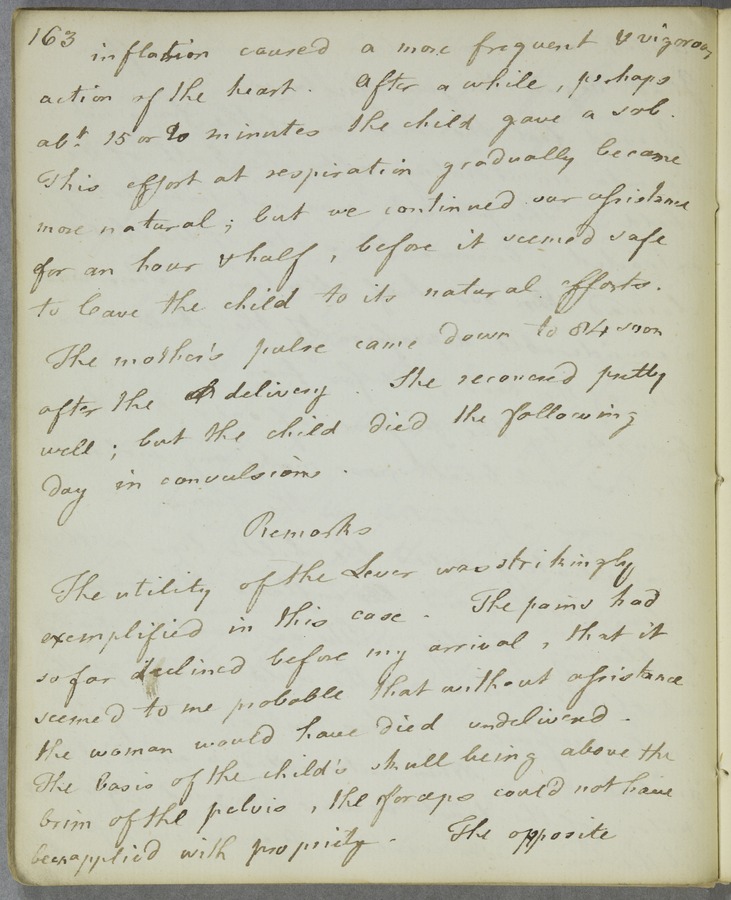 163
inflation caused a more frequent & vigorous
action of the heart. After a while, perhaps
abt 15 or 20 minutes the child gave a sob.
This effort at respiration gradually became
more natural; but we continued our assistance
for an hour & half, before it seemed safe
to leave the child to its natural efforts.
The mother's pulse came down to 84 soon
after the delivery. She recovered pretty
well; but the child died the following
day in convulsions.
Remarks
The utility of the Lever was strikingly
exemplified in this case. The pains had
so far declined before my arrival, that it
seemed to me probable that without assistance
the woman would have died undelivered.
The basis of the child's skull being above the
brim of the pelvis, the forceps could not have
been applied with propriety. The opposite